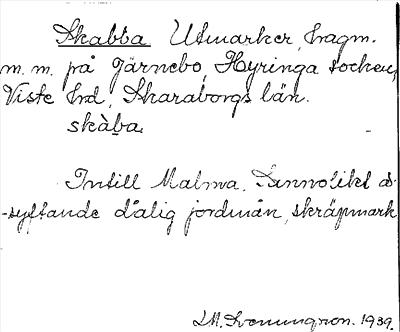 Skabba Utmarker, hagm.
m. m. på Järnebo, Hyringa socken,
Viste hd, Skaraborgs län.
skàba
Intill Malma. Sannolikt å-
-syftande dålig jordmån, skräpmark
I.M. Svenungson. 1939.